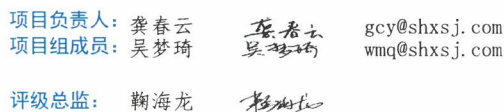 项目负责人：龚春云 龚春云 gcy@shxsj.com
项目组成员：吴梦琦 吴梦琦 wmq@shxsj.com
评级总监：鞠海龙 鞠海龙